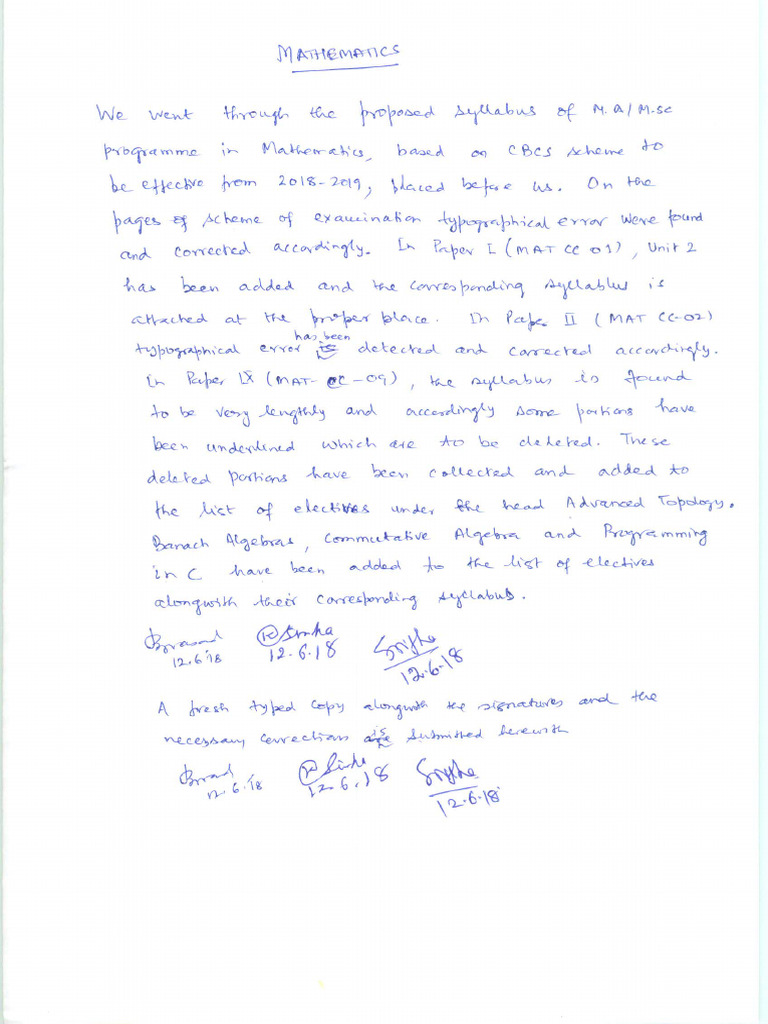 MATHEMATICS
We went through the proposed syllabus of M.A/M.Sc
programme in Mathematics, based on CBCS scheme to
be effective from 2018-2019, placed before us. On the
pages of scheme of examination typographical error were found
and corrected accordingly. In Paper I (MAT CC 01), Unit 2
has been added and the corresponding syllabus is
attached at the proper place. In Paper II (MAT CC-02)
has been
typographical error detected and corrected accordingly.
In Paper IX (MAT-CC-09), the syllabus is found
to be very lengthly and accordingly some portions have
been underlined which are to be deleted. These
deleted portions have been collected and added to
the list of electives under the head Advanced Topology.
Banach Algebras, Commutative Algebra and Programming
in C have been added to the list of electives
alongwith their corresponding syllabus.
12.6.18 12.6.18 12.6.18
A fresh typed copy alongwith the signatures and the
necessary corrections is submitted herewith
12.6.18 12.6.18 12.6.18